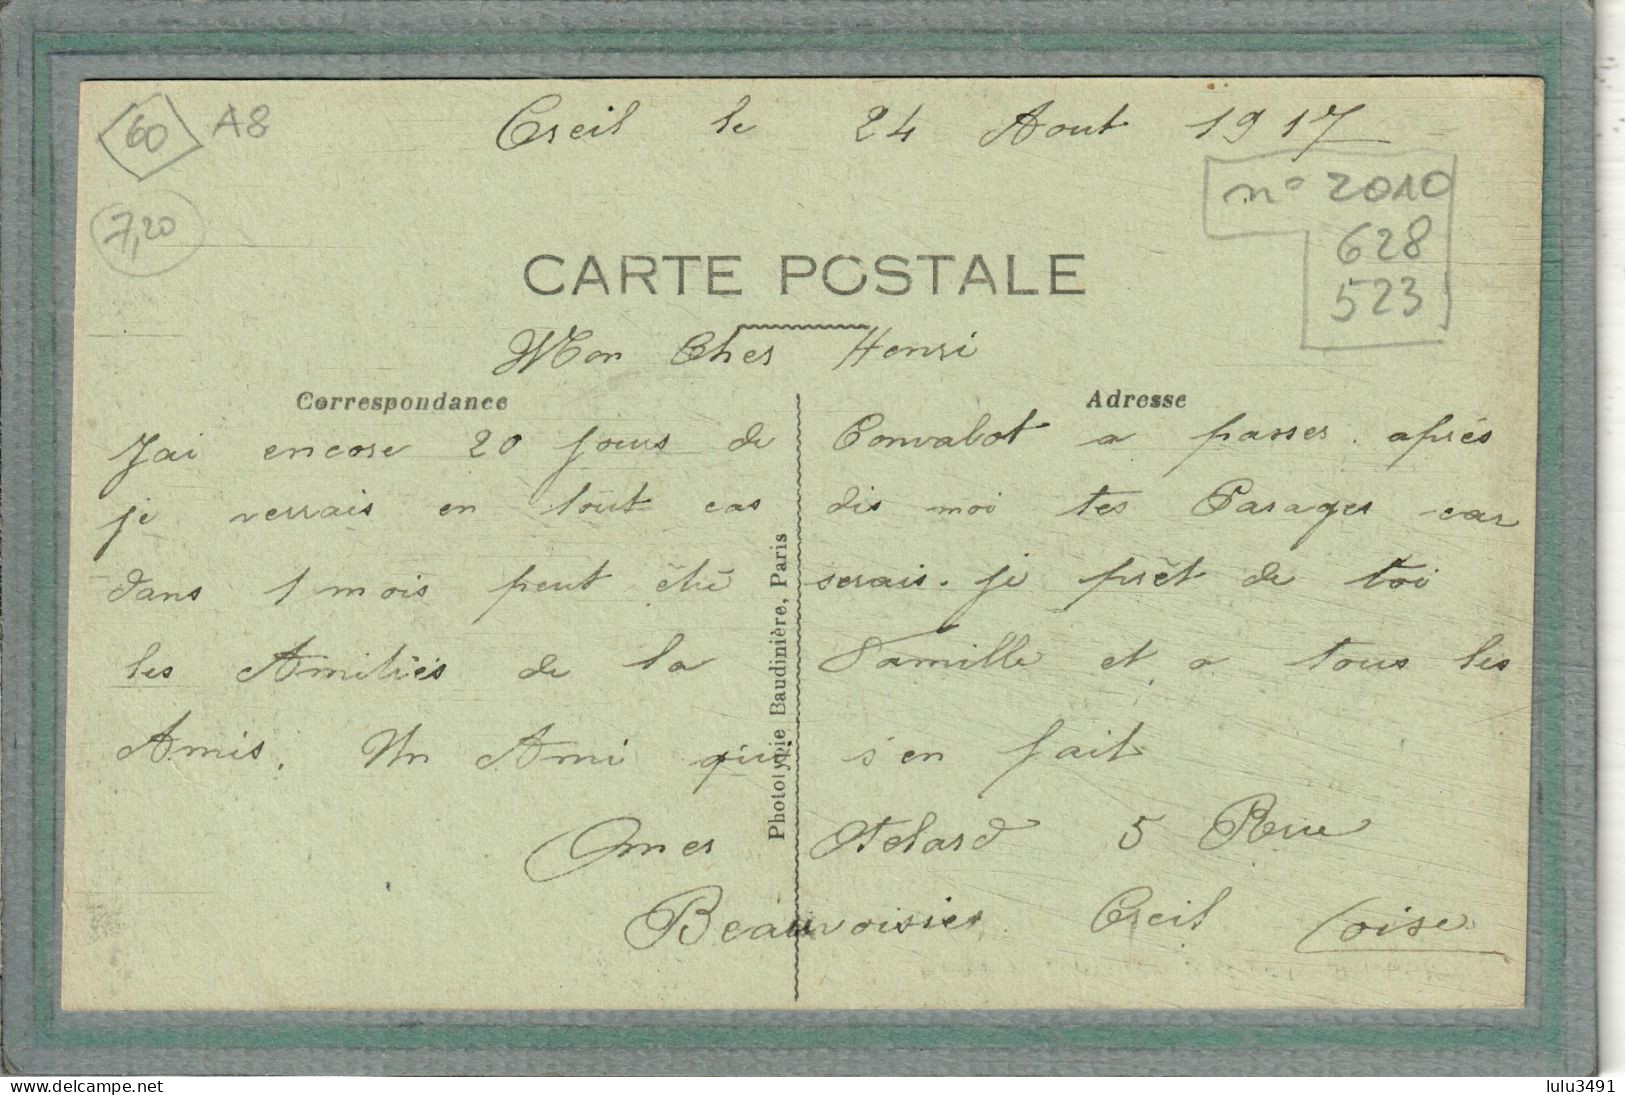 60 A8
Creil le 24 Aout 1917
7,20
n° 2010
628
523
CARTE POSTALE
Mon Cher Henri
Correspondance
Adresse
J'ai encore 20 jours de Convalot a passer. après
je verrais en tout cas dis moi tes Parages car
dans 1 mois peut être serais. je prêt de toi
les Amitiés de la Famille et a tous les
Amis. Un Ami qui s'en fait
Omer 5 Rue
Beauvoisier Creil (oise
Phototypie Baudinière, Paris
www.delcampe.net
lulu3491